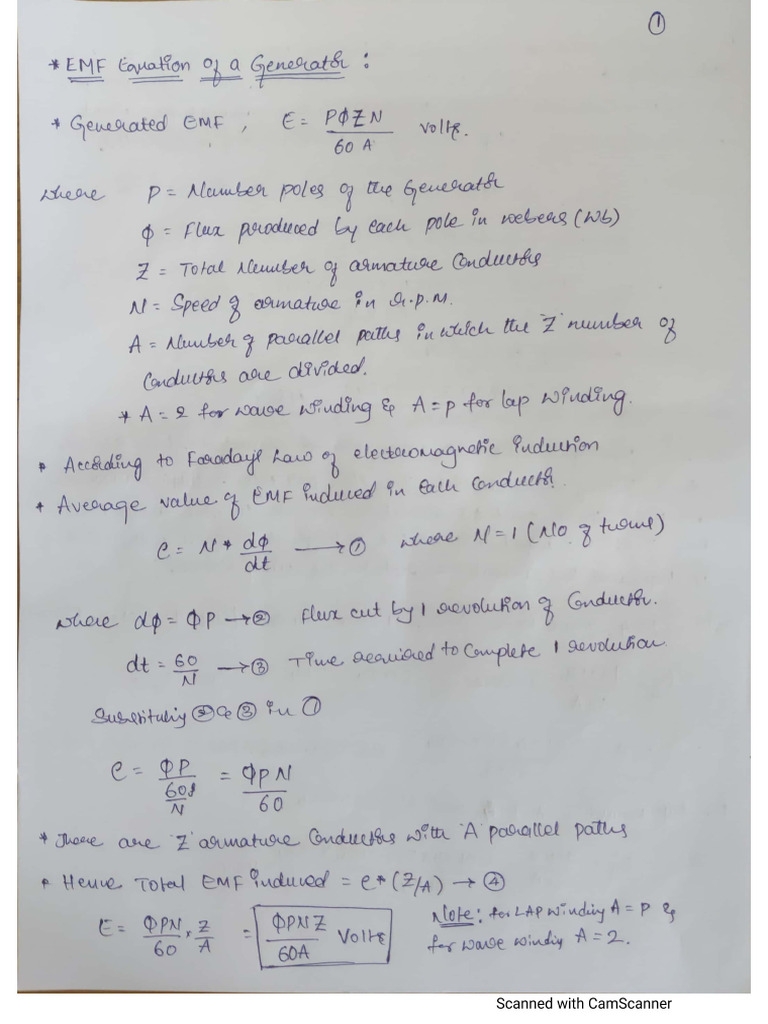 1
* EMF Equation of a Generator :
* Generated EMF, E = PΦZN / 60 A Volts.
where P = Number poles of the Generator
Φ = Flux produced by each pole in webers (Wb)
Z = Total Number of armature Conductors
N = Speed of armature in r.p.m.
A = Number of parallel paths in which the 'Z' number of
Conductors are divided.
* A = 2 for wave winding & A = P for lap winding.
* According to Faradays Law of electromagnetic induction
* Average value of EMF induced in Each Conductor.
e = N * dΦ/dt → ① where N = 1 (No of turns)
where dΦ = ΦP → ② Flux cut by 1 revolution of Conductor.
dt = 60/N → ③ Time required to Complete 1 revolution.
Substituting ② & ③ in ①
e = ΦP / (60/N) = ΦPN / 60
* There are 'Z' armature Conductors with 'A' parallel paths
* Hence Total EMF induced = e * (Z/A) → ④
E = ΦPN/60 × Z/A = ΦPNZ / 60A Volts
Note: for LAP winding A = P &
for wave winding A = 2.
Scanned with CamScanner